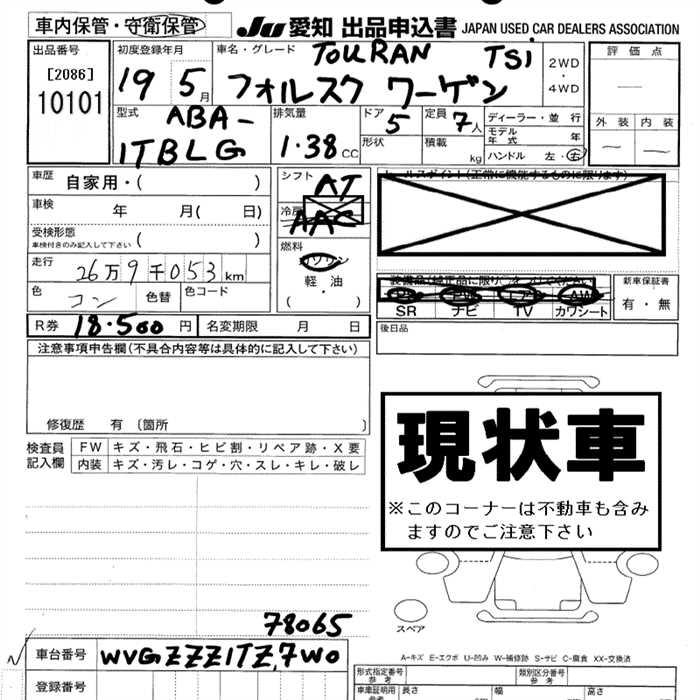 車内保管・守衛保管 JU 愛知 出品申込書 JAPAN USED CAR DEALERS ASSOCIATION
出品番号 初度登録年月 車名・グレード TOURAN TSi 2WD・4WD 評価点
[2086] 19 5月 フォルスク ワーゲン
10101
型式 ABA- 排気量 ドア 5 定員 7人 ディーラー・並行 外装 内装
1TBLG 1.38CC 形状 積載 kg モデル年式 年
ハンドル 左・右
車歴 自家用・( ) シフト AT セールスポイント(正常に機能するものに限ります)
車検 年 月( 日) 冷房 AAC
受検形態 ( )
車検付きのみ記入して下さい
燃料
ガソリン
軽・油
( ・ )
走行 26万9千053km
色 コン 色替 色コード
新車保証書
有・無
SR ナビ TV カワシート
R券 18.500円 名変期限 月 日 後日品
注意事項申告欄(不具合内容等は具体的に記入して下さい)
修復歴 有 〔箇所 〕
検査員記入欄 FW キズ・飛石・ヒビ割・リペア跡・X要
内装 キズ・汚レ・コゲ・穴・スレ・キレ・破レ
現状車
※このコーナーは不動車も含み
ますのでご注意下さい
スペア
78065
車台番号 WVGZZZ1TZ,7W0
A-キズ E-エクボ U-凹み W-補修跡 S-サビ C-腐食 XX-交換済
登録番号
形式指定番号 参考 類別区分番号 参考
車庫証明用 参考 長さ 幅 高さ